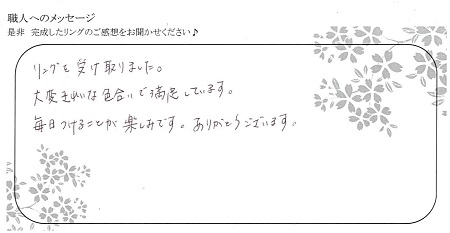 職人へのメッセージ
是非 完成したリングのご感想をお聞かせください♪
リングを受け取りました。
大変きれいな色合いで満足しています。
毎日つけることが楽しみです。ありがとうございます。